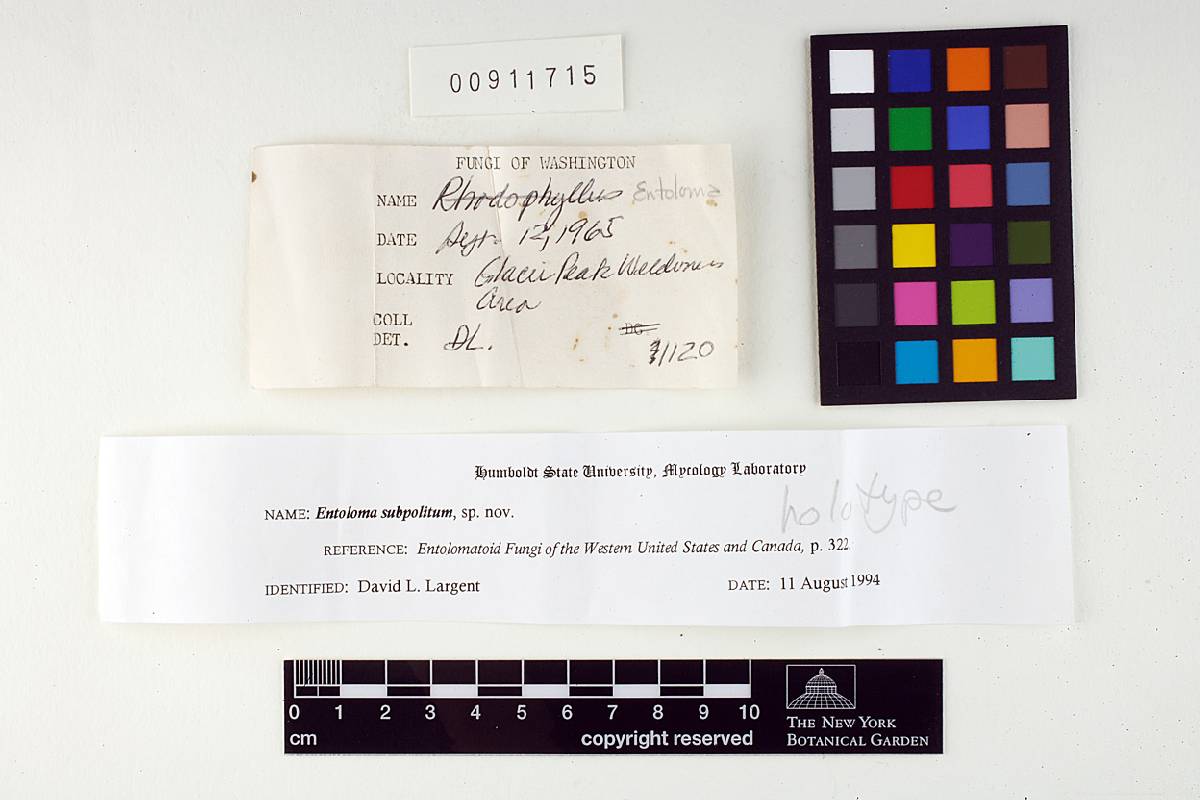 00911715
FUNGI OF WASHINGTON
NAME Rhodophyllus Entoloma
DATE Sept. 12, 1965
LOCALITY Glacier Peak Wilderness
Area
COLL
DET. DL.
1120
Humboldt State University, Mycology Laboratory
holotype
NAME: Entoloma subpolitum, sp. nov.
REFERENCE: Entolomatoid Fungi of the Western United States and Canada, p. 322
IDENTIFIED: David L. Largent DATE: 11 August 1994
0 1 2 3 4 5 6 7 8 9 10
cm copyright reserved
THE NEW YORK
BOTANICAL GARDEN